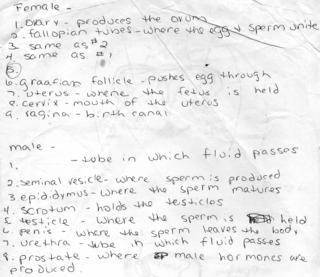 Female -
1. ovary - produces the ovum
2. fallopian tubes - where the egg & sperm unite
3. same as #2
4. same as #1
5.
6. graafian follicle - pushes egg through
7. uterus - where the fetus is held
8. cervix - mouth of the uterus
9. vagina - birth canal
male -
1. - tube in which fluid passes
2. seminal vesicle - where sperm is produced
3. epididymus - where the sperm matures
4. scrotum - holds the testiclos
5. testicle - where the sperm is held
6. penis - where the sperm leaves the body
7. urethra - tube in which fluid passes
8. prostate - where male hormones are
produced.